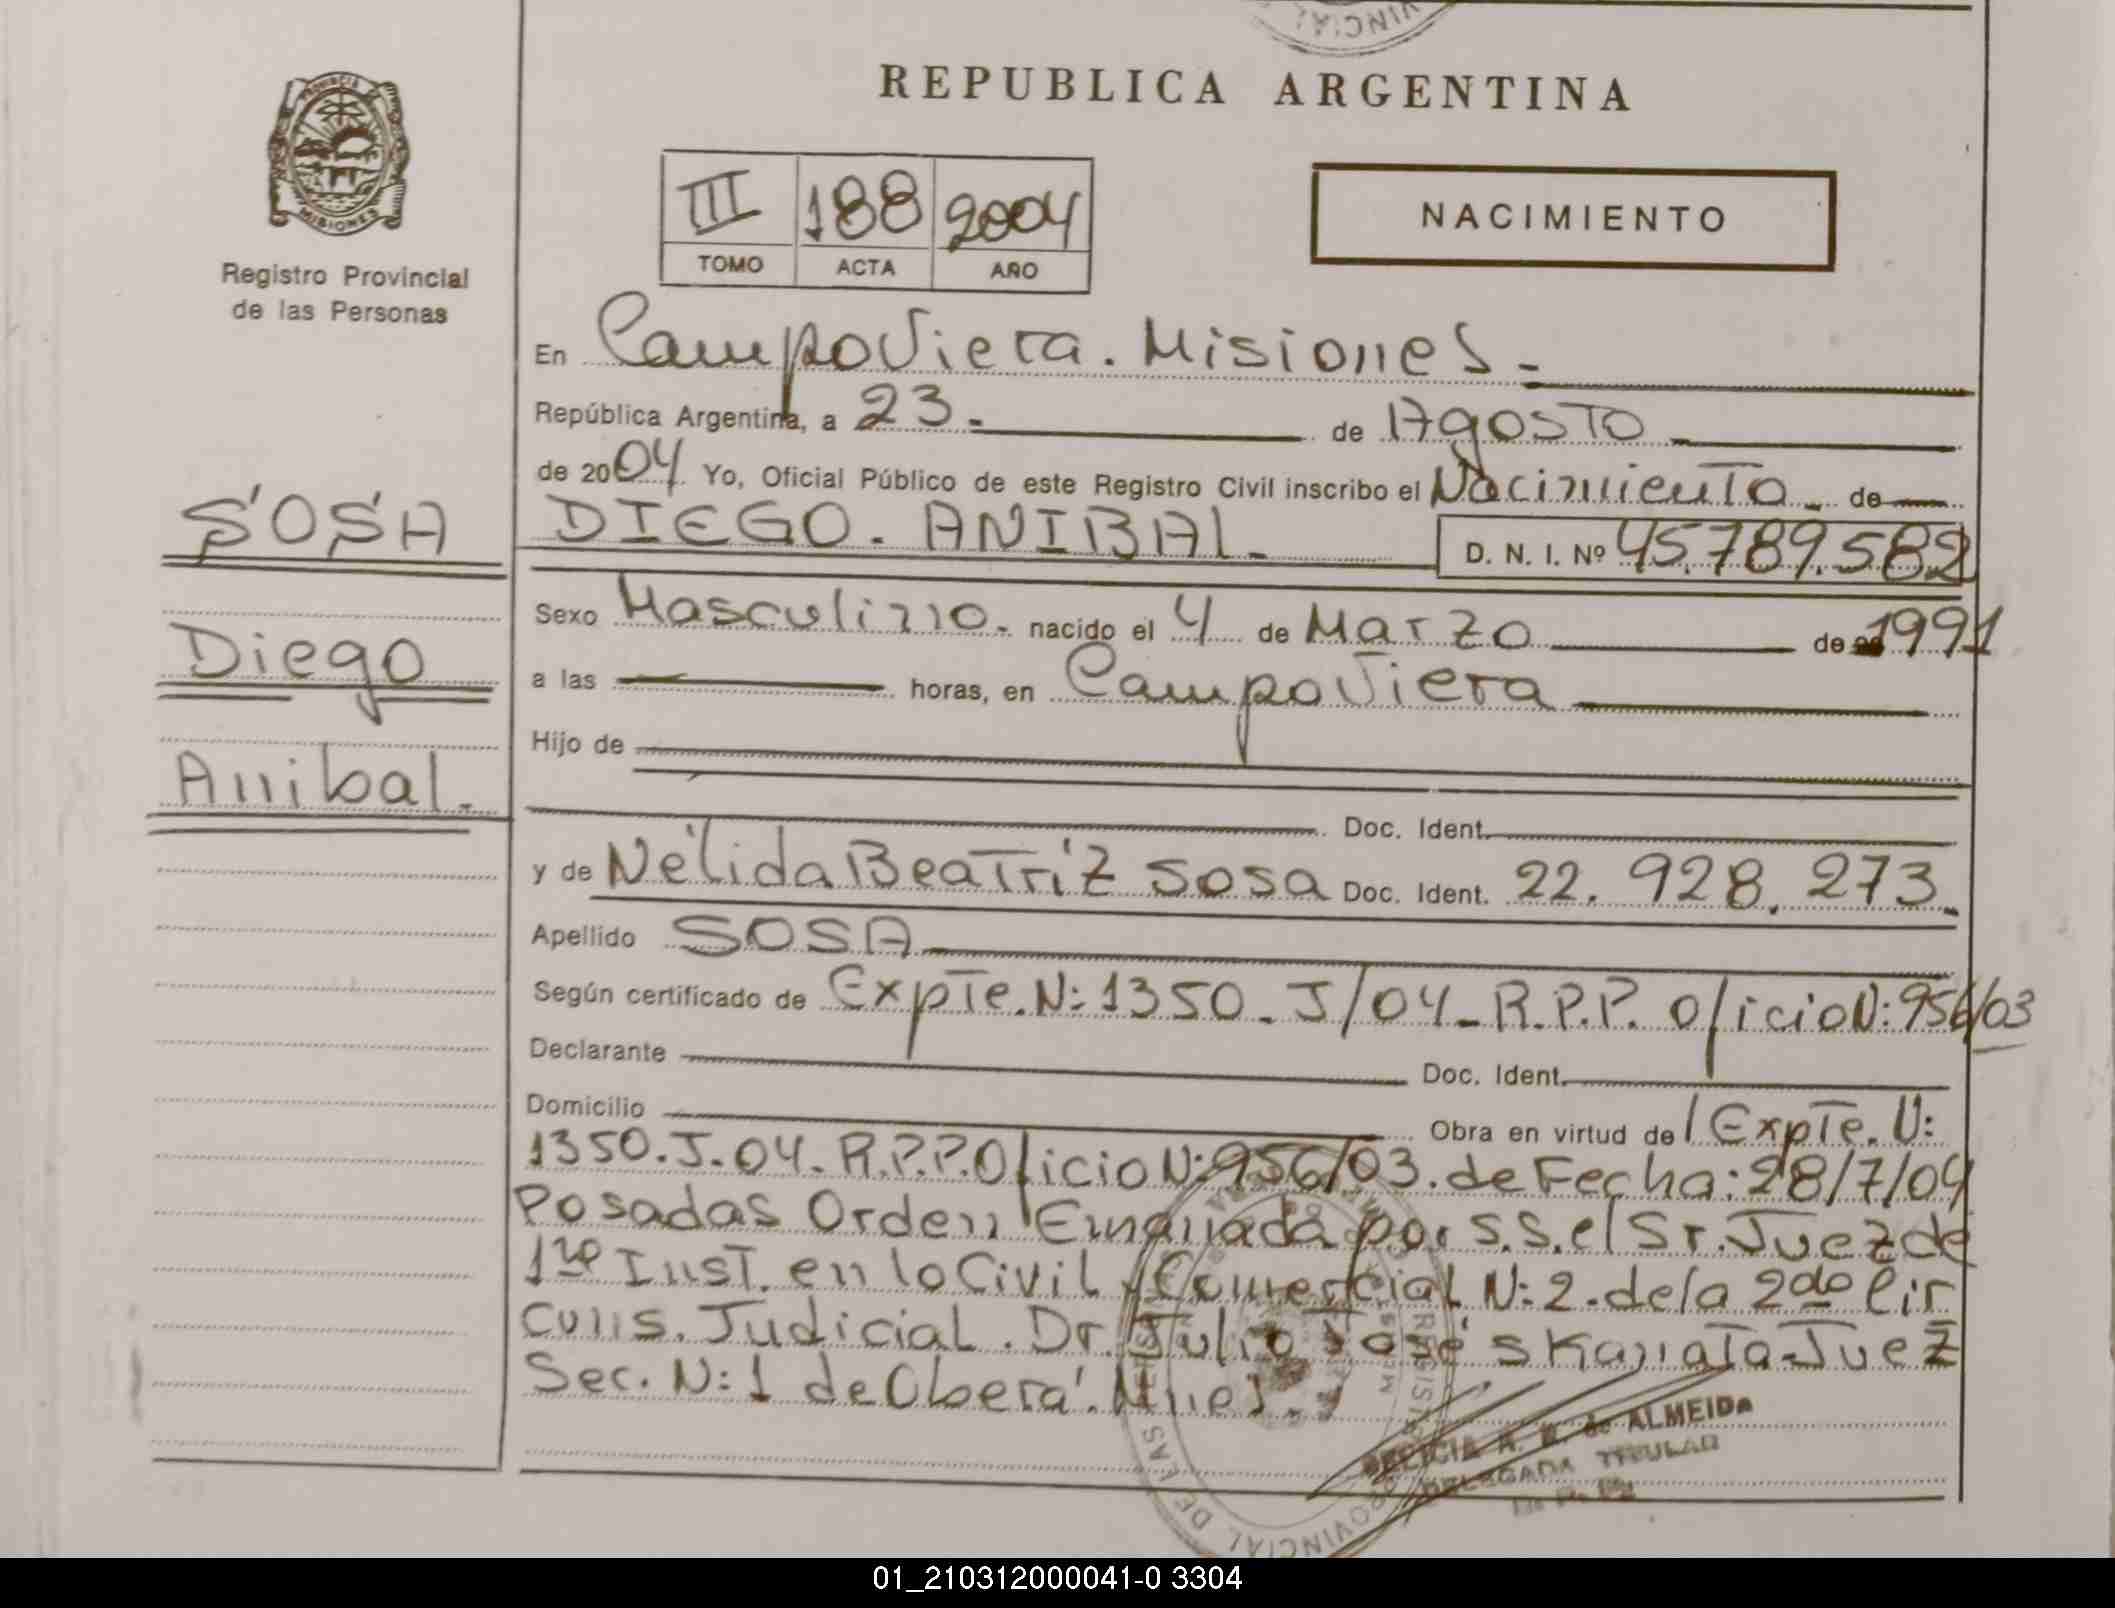 PROVINCIAL
PROVINCIA
MISIONES
Registro Provincial
de las Personas
SOSA
Diego
Anibal.
REPUBLICA ARGENTINA
III 188 2004
TOMO ACTA AÑO
NACIMIENTO
En Campo Viera. Misiones.
República Argentina, a 23. de Agosto
de 2004 Yo, Oficial Público de este Registro Civil inscribo el Nacimiento de
DIEGO. ANIBAL. D. N. I. Nº 45.789.582
Sexo Masculino. nacido el 4 de Marzo de 1991
a las horas, en Campo Viera
Hijo de
Doc. Ident.
y de Nélida Beatríz Sosa Doc. Ident. 22.928.273.
Apellido SOSA
Según certificado de Expte. N: 1350. J/04 - R.P.P. Oficio N: 956/03
Declarante Doc. Ident.
Domicilio Obra en virtud de Expte. N:
1350. J. 04. R.P.P. Oficio N: 956/03. de Fecha: 28/7/04
Posadas Orden Emanada por S.S. el Sr. Juez de
1ro Inst. en lo Civil y Comercial N: 2. de la 2do Cir
cuns. Judicial. Dr. Julio José Skanata-Juez
Sec. N: 1 de Oberá. Mnes.
REGISTRO PROVINCIAL DE LAS PERSONAS
de ALMEIDA
DELEGADA TITULAR
01_210312000041-0 3304